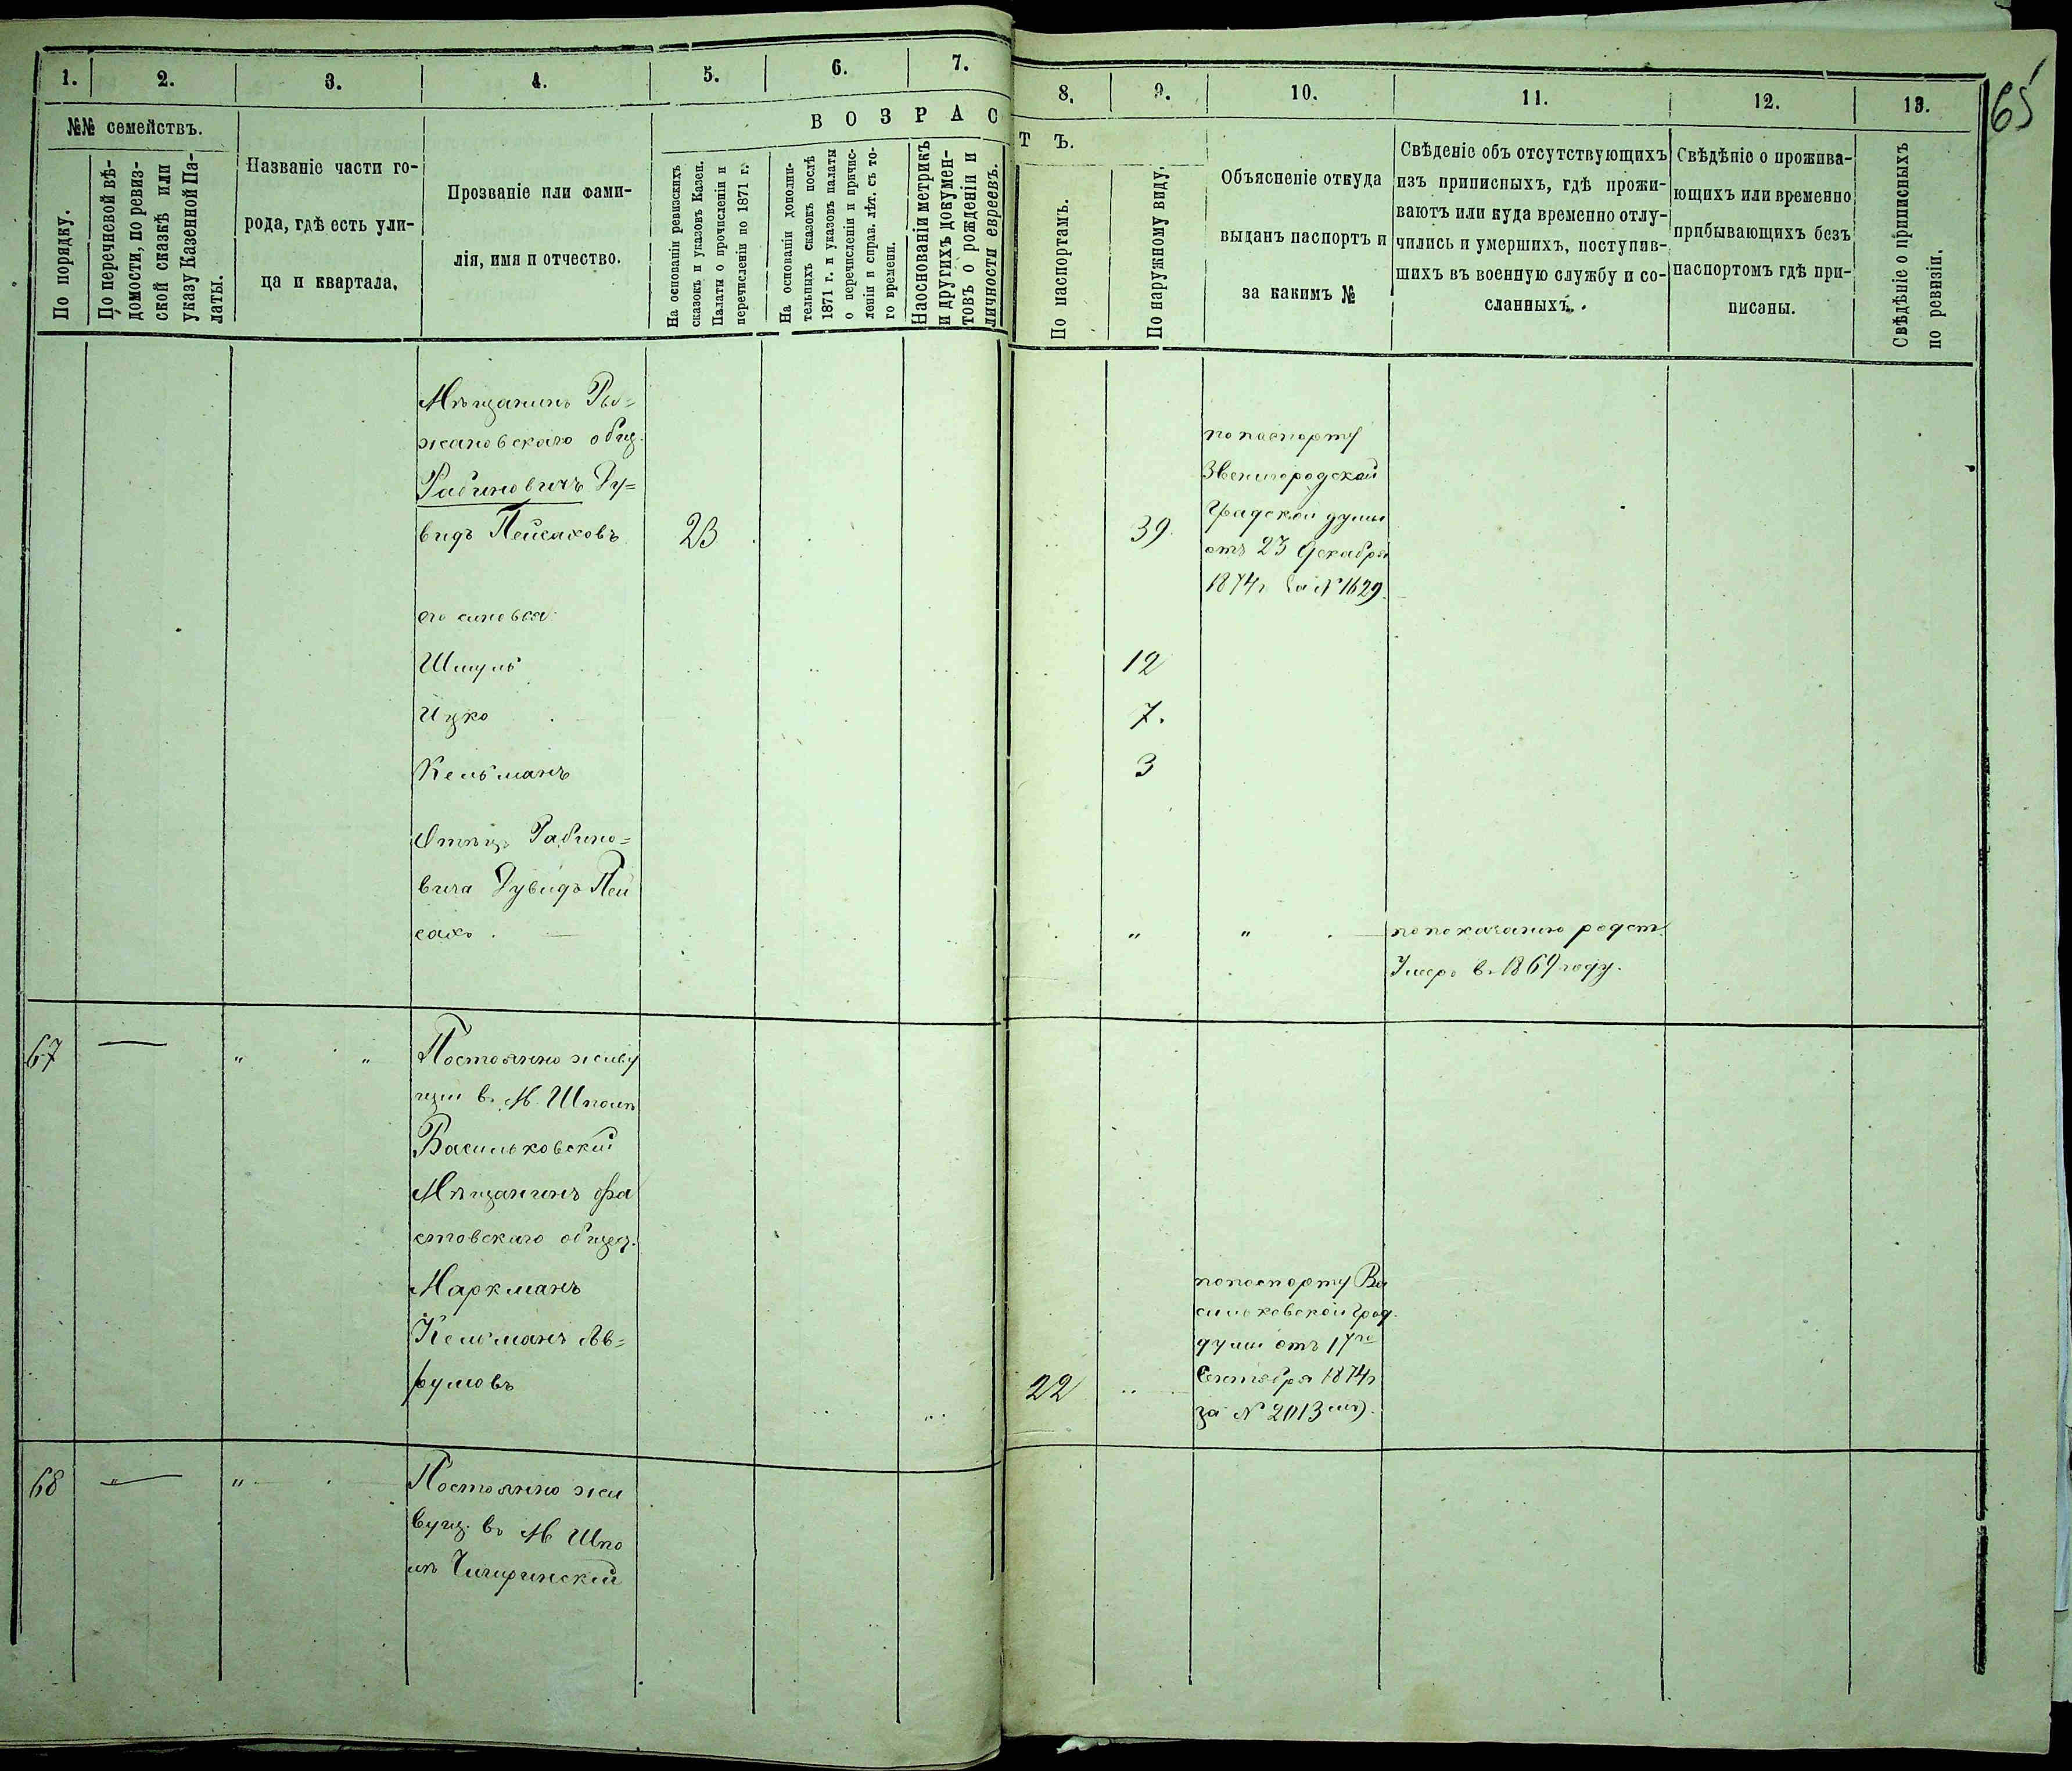 65
1. 2. 3. 4. 5. 6. 7. 8. 9. 10. 11. 12. 13.
№№ семействъ.
По порядку.
По перечневой вѣ-
домости, по ревиз-
ской сказкѣ или
указу Казенной Па-
латы.
Названіе части го-
рода, гдѣ есть ули-
ца и квартала.
Прозваніе или фами-
лія, имя и отчество.
ВОЗРАСТЪ.
На основаніи ревизскихъ
сказокъ и указовъ Казен.
Палаты о прочисленіи и
перечисленіи по 1871 г.
На основаніи дополни-
тельныхъ сказокъ послѣ
1871 г. и указовъ палаты
о перечисленіи и причис-
леніи и справ. лѣт. съ то-
го времени.
На основаніи метрикъ
и другихъ докумен-
товъ о рожденіи и
личности евреевъ.
По паспортамъ.
По наружному виду.
Объясненіе откуда
выданъ паспортъ и
за какимъ №
Свѣденіе объ отсутствующихъ
изъ приписныхъ, гдѣ прожи-
ваютъ или куда временно отлу-
чились и умершихъ, поступив-
шихъ въ военную службу и со-
сланныхъ.
Свѣдѣніе о прожива-
ющихъ или временно
прибывающихъ безъ
паспортомъ гдѣ при-
писаны.
Свѣдѣніе о приписныхъ
по ревизіи.
Мѣщанинъ Ры=
жановскаго общ.
Рабиновичъ Ду=
видъ Пейсаховъ 23 39
по паспорту
Звенигородской
Градской думы
отъ 23 Декабря
1874г за № 1629.
его сыновья:
Шмуль 12
Ицко 7.
Кельманъ 3
Отецъ Рабино=
вича Дувидъ Пей
сахъ . " " по показанію родст.
Умеръ в. 1869 году.
67 — " " Постоянно живу
щій в. М. Шполѣ
Васильковскій
Мѣщанинъ Фа
стовскаго общест.
Маркманъ
Кельманъ Ав=
румовъ 22 "
по паспорту Ва
сильковской град.
думы отъ 17го
Сентября 1874г
за № 2013мъ).
68 —"— " Постоянно жи
вущ. въ М Шпо
лѣ Чигиринскій